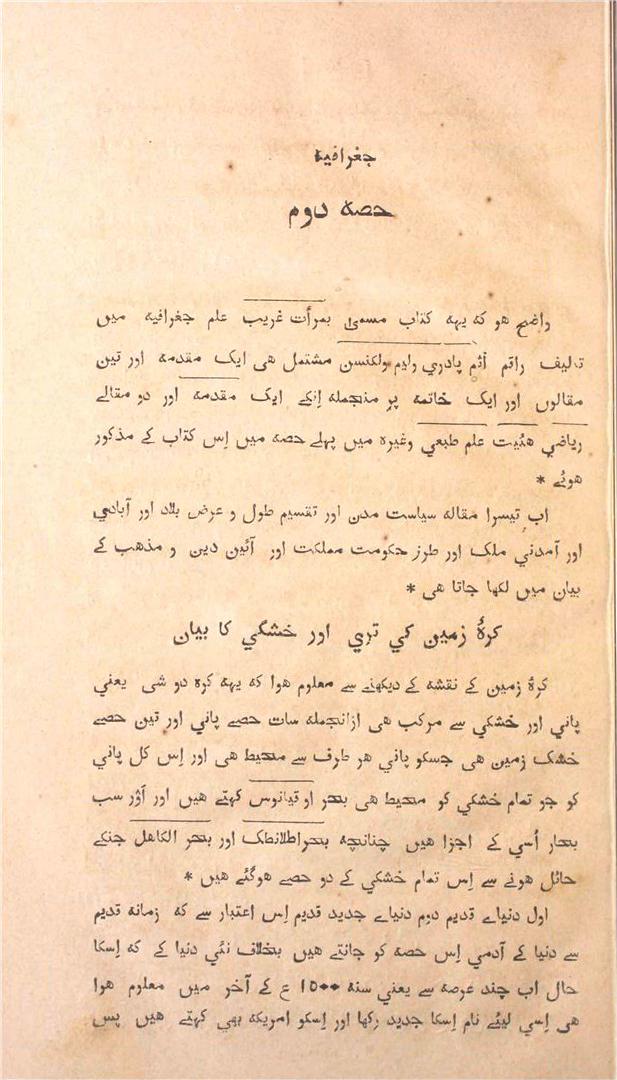 جغرافیه
حصه دوم
واضح هو که یهه کتاب مسمیٰ بمرأت غریب علم جغرافیه میں
تالیف راقم اُثم پادري ولیم ولکنسن مشتمل هی ایک مقدمه اور تین
مقالوں اور ایک خاتمه پر منجمله اِنکے ایک مقدمه اور دو مقالے
ریاضي هئیت علم طبعي وغیره میں پہلے حصه میں اِس کتاب کے مذکور
هوئے *
اب تیسرا مقاله سیاست مدن اور تقسیم طول و عرض بلاد اور آبادي
اور آمدني ملک اور طرز حکومت مملکت اور آئین دین و مذهب کے
بیان میں لکها جاتا هی *
کرۂ زمین کي تري اور خشگي کا بیان
کرۂ زمین کے نقشه کے دیکهنے سے معلوم هوا که یهه کره دو شی یعني
پاني اور خشکي سے مرکب هی ازانجمله سات حصے پاني اور تین حصے
خشک زمین هی جسکو پاني هر طرف سے محیط هی اور اِس کل پاني
کو جو تمام خشکي کو محیط هی بحر اوقیانوس کہتے هیں اور آؤر سب
بحار اُسي کے اجزا هیں چنانچه بحراطلانطک اور بحر الکاهل جنکے
حائل هونے سے اِس تمام خشکي کے دو حصے هوگئے هیں *
اول دنیاے قدیم دوم دنیاے جدید قدیم اِس اعتبار سے که زمانه قدیم
سے دنیا کے آدمي اِس حصه کو جانتے هیں بخلاف نئي دنیا کے که اِسکا
حال اب چند عرصه سے یعني سنه ۱۵۰۰ ع کے آخر میں معلوم هوا
هی اِسي لیئے نام اِسکا جدید رکها اور اِسکو امریکه بهي کہتے هیں پس